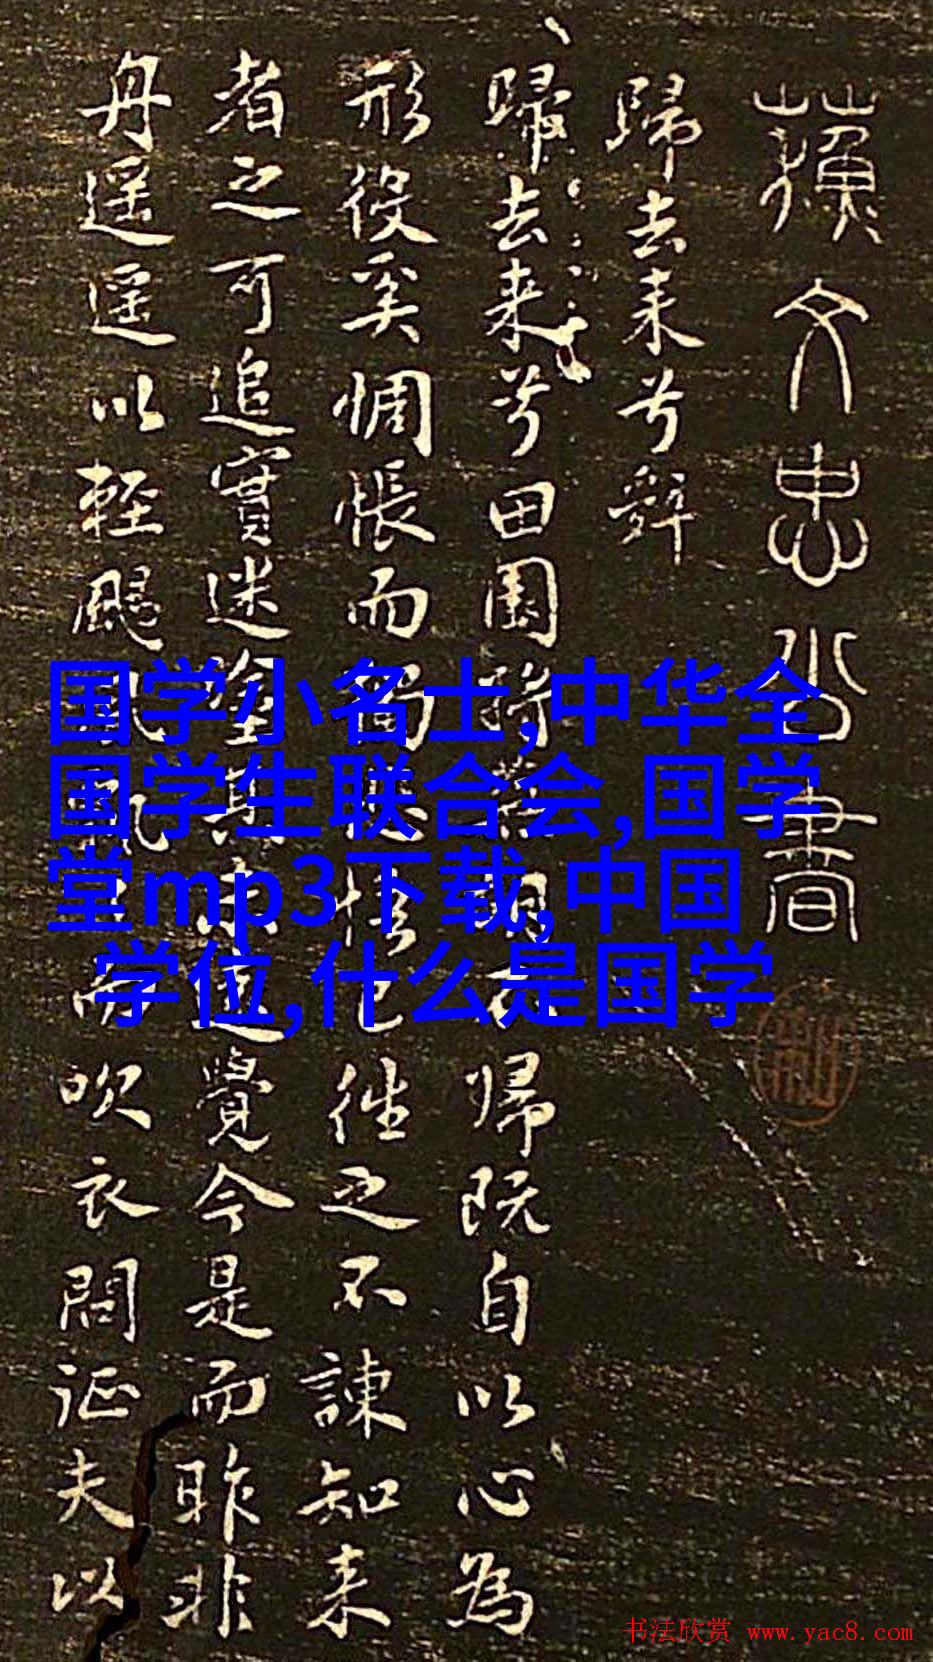 蘇文忠公書
歸去来兮辞
歸去来兮田園將蕪胡不帰既自以心為
形役奚惆悵而獨悲悟已往之不諫知来
者之可追實迷途其未遠覺今是而昨非
舟遥遥以輕颺風飄飄而吹衣問征夫以
国学小名士,中华全
国学生联合会,国学
堂mp3下载,中国
学位,什么是国学
书法欣赏 www.yac8.com